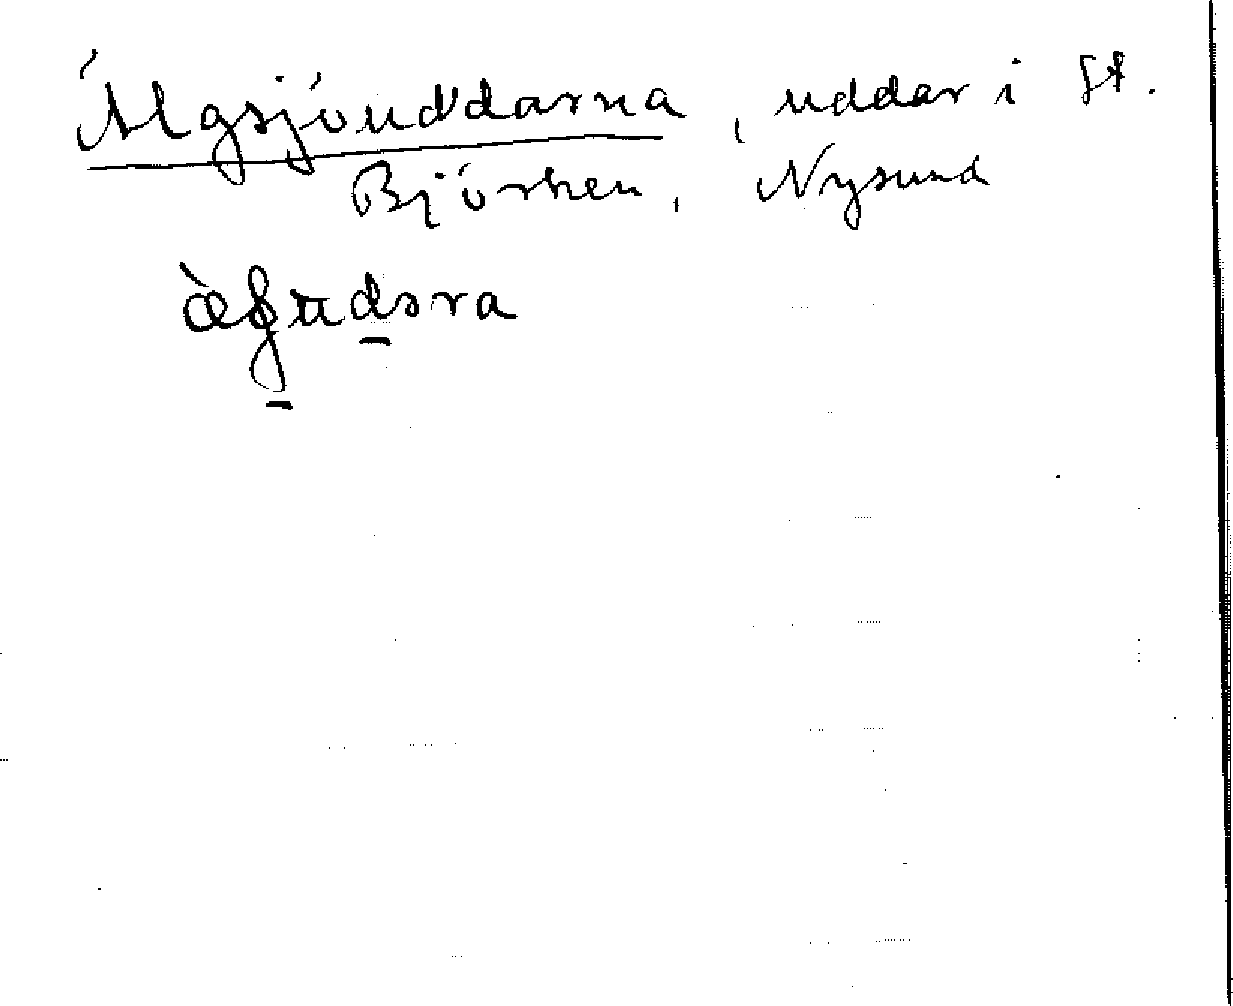 Älgsjöuddarna, uddar i St.
Björken, Nysund